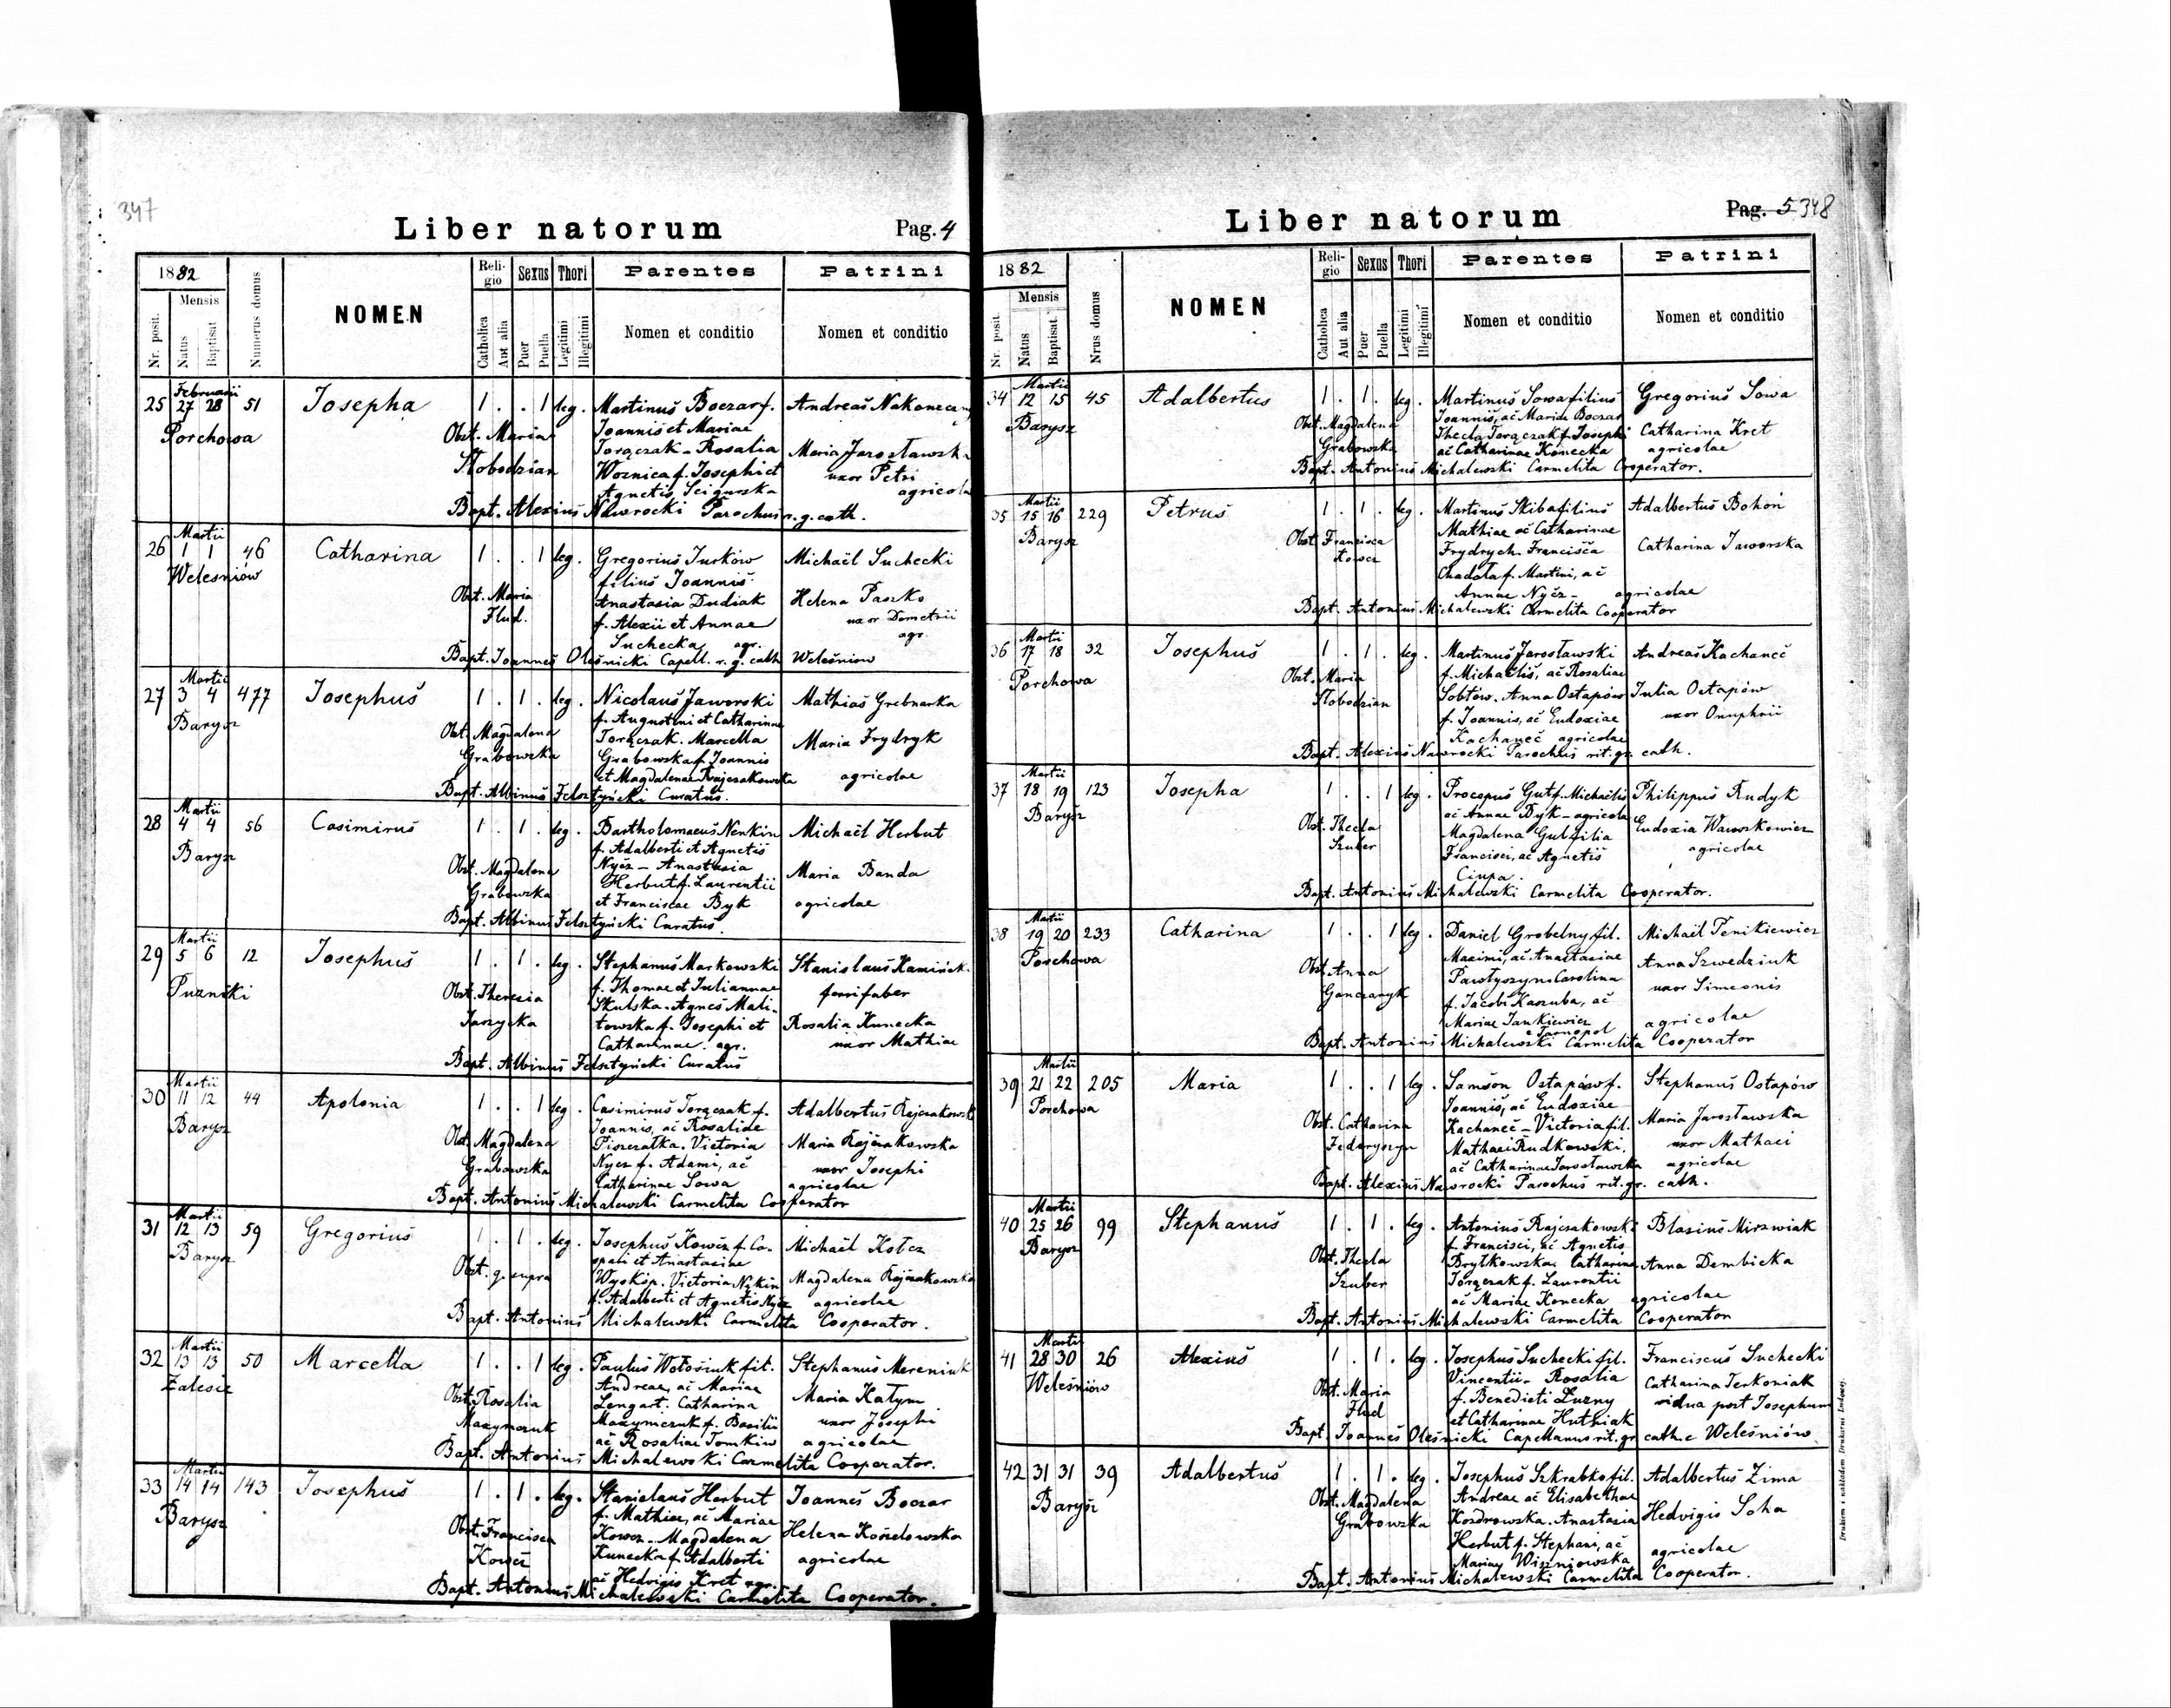 347
Liber natorum
Pag. 4
1882
Nr. posit.
Mensis
Natus
Baptisat
Numerus domus
NOMEN
Religio
Catholica
Aut alia
Sexus
Puer
Puella
Thori
Legitimi
Illegitimi
Parentes
Nomen et conditio
Patrini
Nomen et conditio
25 Februarii 27 28 51 Josepha 1 . . 1 leg. Martinus Boczar f. Andreas Nakoneczny
Porchowa Obst. Maria Joannis et Mariae
Slobodzian Torączak - Rosalia Maria Jarosławska
Woznica f. Josephi et uxor Petri
Agnetis Scigurska agricola
Bapt. Alexius Nawrocki Parochus r. g. cath.
26 Martii 1 1 46 Catharina 1 . . 1 leg. Gregorius Jurków Michaël Suchecki
Welesniów filius Joannis
Obst. Maria Anastasia Dudiak Helena Paszko
Flud. f. Alexii et Annae uxor Demetrii
Suchecka agr. agr.
Bapt. Joannes Olesnicki Capell. r. g. cath. Welesniow
27 Martii 3 4 477 Josephus 1 . 1 . leg. Nicolaus Jaworski Mathias Grebnarka
Barysz f. Augustini et Catharinae
Obst. Magdalena Torączak. Marcella Maria Frydryk
Grabowska Grabowska f. Joannis
et Magdalenae Rajczakowska agricolae
Bapt. Albinus Felsztyński Curatus.
28 Martii 4 4 56 Casimirus 1 . 1 . leg. Bartholomaeus Nenkin Michaël Herbut
Barysz f. Adalberti et Agnetis
Obst. Magdalena Nycz - Anastasia Maria Banda
Grabowska Herbut f. Laurentii
et Franciscae Byk agricolae
Bapt. Albinus Felsztyński Curatus.
29 Martii 5 6 12 Josephus 1 . 1 . leg. Stephanus Markowski Stanislaus Kamińsk.
Puzniki f. Thomae et Juliannae ferrifaber
Obst. Theresia Skulska. Agnes Mali-
Jaszycka towska f. Josephi et Rosalia Kunecka
Catharinae. agr. uxor Mathiae
Bapt. Albinus Felsztyński Curatus
30 Martii 11 12 44 Apolonia 1 . . 1 leg. Casimirus Torączak f. Adalbertus Rajczakowski
Barysz Joannis, ac Rosaliae
Obst. Magdalena Piszczatka. Victoria Maria Rajczakowska
Grabowska Nycz f. Adami, ac uxor Josephi
Catharinae Sowa agricolae
Bapt. Antonius Michalewski Carmelita Cooperator
31 Martii 12 13 59 Gregorius 1 . 1 . leg. Josephus Kowcz f. Ca- Michaël Kołcz
Barysz spari et Anastasiae
Obst. q. supra Wyskóp. Victoria Nękin Magdalena Rajczakowska
f. Adalberti et Agnetis Nycz agricolae
Bapt. Antonius Michalewski Carmelita Cooperator.
32 Martii 13 13 50 Marcella 1 . . 1 leg. Paulus Wołosiuk fil. Stephanus Mereniuk
Zalesie Andreae, ac Mariae
Obst. Rosalia Lengart. Catharina Maria Kałym
Maxymczuk Maxymiczuk f. Basilii uxor Josephi
ac Rosaliae Tomkiw agricolae
Bapt. Antonius Michalewski Carmelita Cooperator.
33 Martii 14 14 143 Josephus 1 . 1 . leg. Stanislaus Herbut Joannes Boczar
Barysz f. Mathiae, ac Mariae
Obst. Francisca Kowcz - Magdalena Helena Kozielowska
Kowcz Kunecka f. Adalberti agricolae
ac Hedvigis Kret agr.
Bapt. Antonius Michalewski Carmelita Cooperator.
Liber natorum
Pag. 5 348
1882
Nr. posit.
Mensis
Natus
Baptisat.
Nrus domus
NOMEN
Religio
Catholica
Aut alia
Sexus
Puer
Puella
Thori
Legitimi
Illegitimi
Parentes
Nomen et conditio
Patrini
Nomen et conditio
34 Martii 12 15 45 Adalbertus 1 . 1 . leg. Martinus Sowa filius Gregorius Sowa
Barysz Joannis, ac Mariae Boczar
Obst. Magdalena Thecla Torączak f. Josephi Catharina Kret
Grabowska ac Catharinae Konecka agricolae
Bapt. Antonius Michalewski Carmelita Cooperator.
35 Martii 15 16 229 Petrus 1 . 1 . leg. Martinus Skiba filius Adalbertus Bohoń
Barysz Mathiae ac Catharinae
Obst. Francisca Frydrych. Francisca Catharina Jaworska
Kowcz Chadała f. Martini, ac
Annae Nycz - agricolae
Bapt. Antonius Michalewski Carmelita Cooperator
36 Martii 17 18 32 Josephus 1 . 1 . leg. Martinus Jarosławski Andreas Kachaneč
Porchowa f. Michaëlis, ac Rosaliae
Obst. Maria Sobtów. Anna Ostapów Julia Ostapów
Slobodzian f. Joannis, ac Eudoxiae uxor Onuphrii
Kachaneč agricolae
Bapt. Alexius Nawrocki Parochus rit. gr. cath.
37 Martii 18 19 123 Josepha 1 . . 1 leg. Procopius Gut f. Michaëlis Philippus Rudyk
Barysz ac Annae Byk - agricola
Obst. Thecla Magdalena Gut filia Eudoxia Wawrzkowicz
Szuber Francisci, ac Agnetis agricolae
Ciupa.
Bapt. Antonius Michalewski Carmelita Cooperator.
38 Martii 19 20 233 Catharina 1 . . 1 leg. Daniel Grobelny fil. Michaël Penikiewicz
Porchowa Maximi, ac Anastasiae
Obst. Anna Pawłyszyn Carolina Anna Szwedziuk
Ganczaryk f. Jacobi Kaszuba, ac uxor Simeonis
Mariae Jankiewicz agricolae
e Tarnopol
Bapt. Antonius Michalewski Carmelita Cooperator
39 Martii 21 22 205 Maria 1 . . 1 leg. Samson Ostapów f. Stephanus Ostapów
Porchowa Joannis, ac Eudoxiae
Obst. Catharina Kachaneč - Victoria fil. Maria Jarosławska
Federyszyn Mathaei Rudkowski, uxor Mathaei
ac Catharinae Jarosławska agricolae
Bapt. Alexius Nawrocki Parochus rit. gr. cath.
40 Martii 25 26 99 Stephanus 1 . 1 . leg. Antonius Rajczakowski Blasius Mirzwiak
Barysz f. Francisci, ac Agnetis
Obst. Thecla Brytkowska. Catharina Anna Dembicka
Szuber Torączak f. Laurentii
ac Mariae Konecka agricolae
Bapt. Antonius Michalewski Carmelita Cooperator
41 Martii 28 30 26 Alexius 1 . 1 . leg. Josephus Suchecki fil. Franciscus Suchecki
Welesniów Vincentii - Rosalia Catharina Terkoniak
Obst. Maria f. Benedicti Luzny vidua post Josephum
Flud et Catharinae Hutniak
Bapt. Joannes Olesnicki Capellanus rit. gr. cath. e Welesniów.
42 31 31 39 Adalbertus 1 . 1 . leg. Josephus Szkrabko fil. Adalbertus Zima
Barysz Andreae ac Elisabethae
Obst. Magdalena Kozdrowska. Anastasia Hedvigis Soha
Grabowska Herbut f. Stephani, ac agricolae
Mariae Wiszniowska
Bapt. Antonius Michalewski Carmelita Cooperator.
Drukiem i nakładem Drukarni Ludowej.